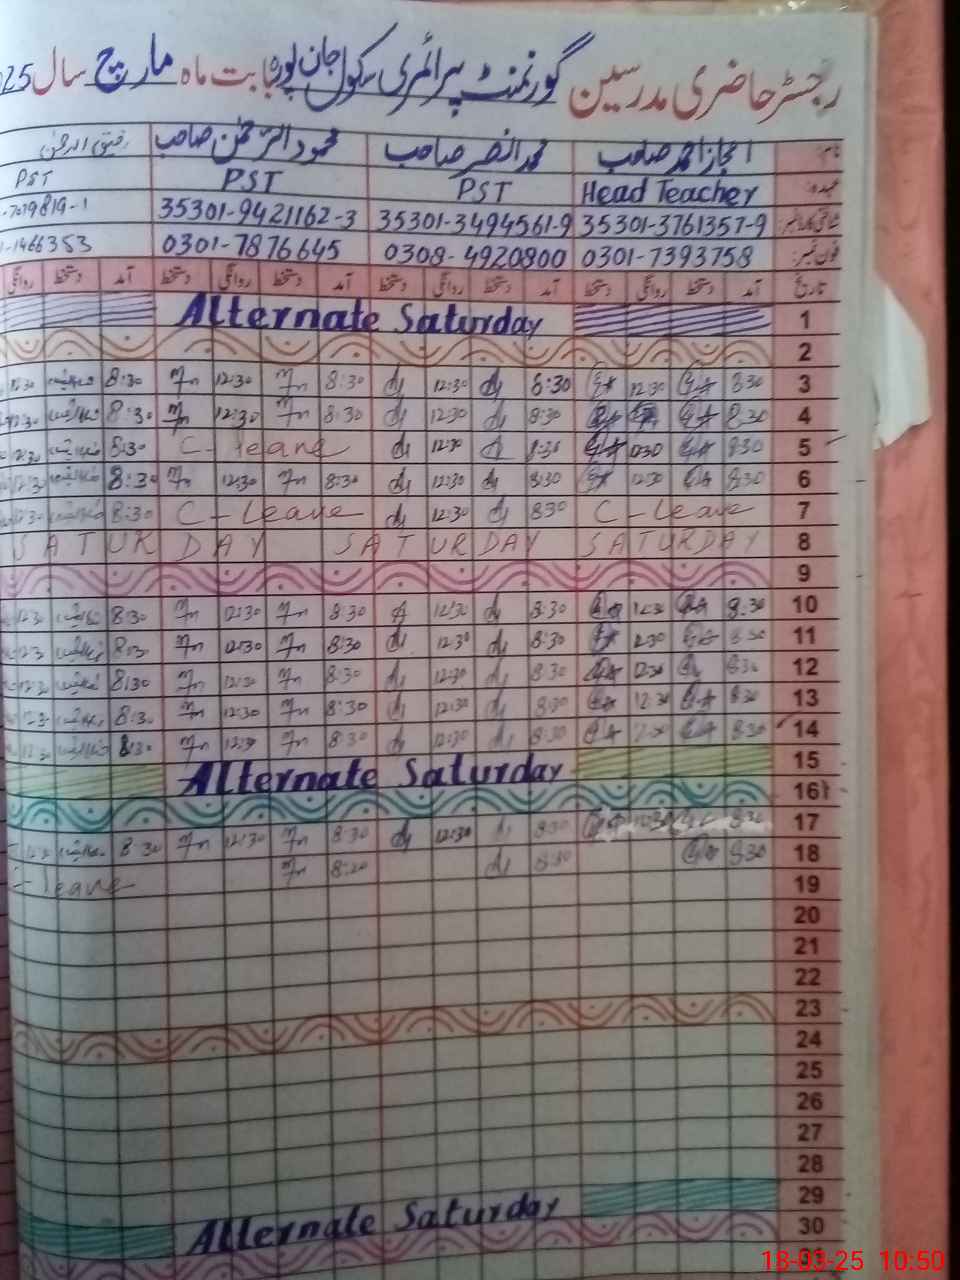 رجسٹر حاضری مدرسین گورنمنٹ پرائمری سکول جان پورہ بابت ماہ مارچ سال 25
نام: اعجاز احمد صاحب محمد انصر صاحب محمود الرحمٰن صاحب رفیق الرحمٰن
عہدہ: Head Teacher PST PST PST
شناختی کارڈ نمبر: 35301-3761357-9 35301-3494561-9 35301-9421162-3 -7079819-1
فون نمبر: 0301-7393758 0308-4920800 0301-7876645 1-1466353
تاریخ آمد دستخط روانگی دستخط آمد دستخط روانگی دستخط آمد دستخط روانگی دستخط آمد دستخط روانگی
1 Alternate Saturday
2
3 8:30 12:30 8:30 12:30 8:30 12:30 8:30 12:30
4 8:30 8:30 12:30 8:30 12:30 8:30 12:30
5 8:30 12:30 8:30 12:30 C-leave 8:30 12:30
6 8:30 12:30 8:30 12:30 8:30 12:30 8:30 12:30
7 C-Leave 8:30 12:30 C-Leave 8:30 12:30
8 SATURDAY SATURDAY SATURDAY
9
10 8:30 12:30 8:30 12:30 8:30 12:30 8:30 12:30
11 8:30 12:30 8:30 12:30 8:30 12:30 8:30 12:3
12 8:30 12:30 8:30 12:30 8:30 12:30 8:30 12:3
13 8:30 12:30 8:30 12:30 8:30 12:30 8:30 12:3
14 8:30 12:30 8:30 12:30 8:30 12:30 8:30 12:30
15 Alternate Saturday
16
17 8:30 12:30 8:30 12:30 8:30 12:30 8:30
18 8:30 8:30 8:20 C-leave
19
20
21
22
23
24
25
26
27
28
29 Alternate Saturday
30
31
18-03-25 10:50